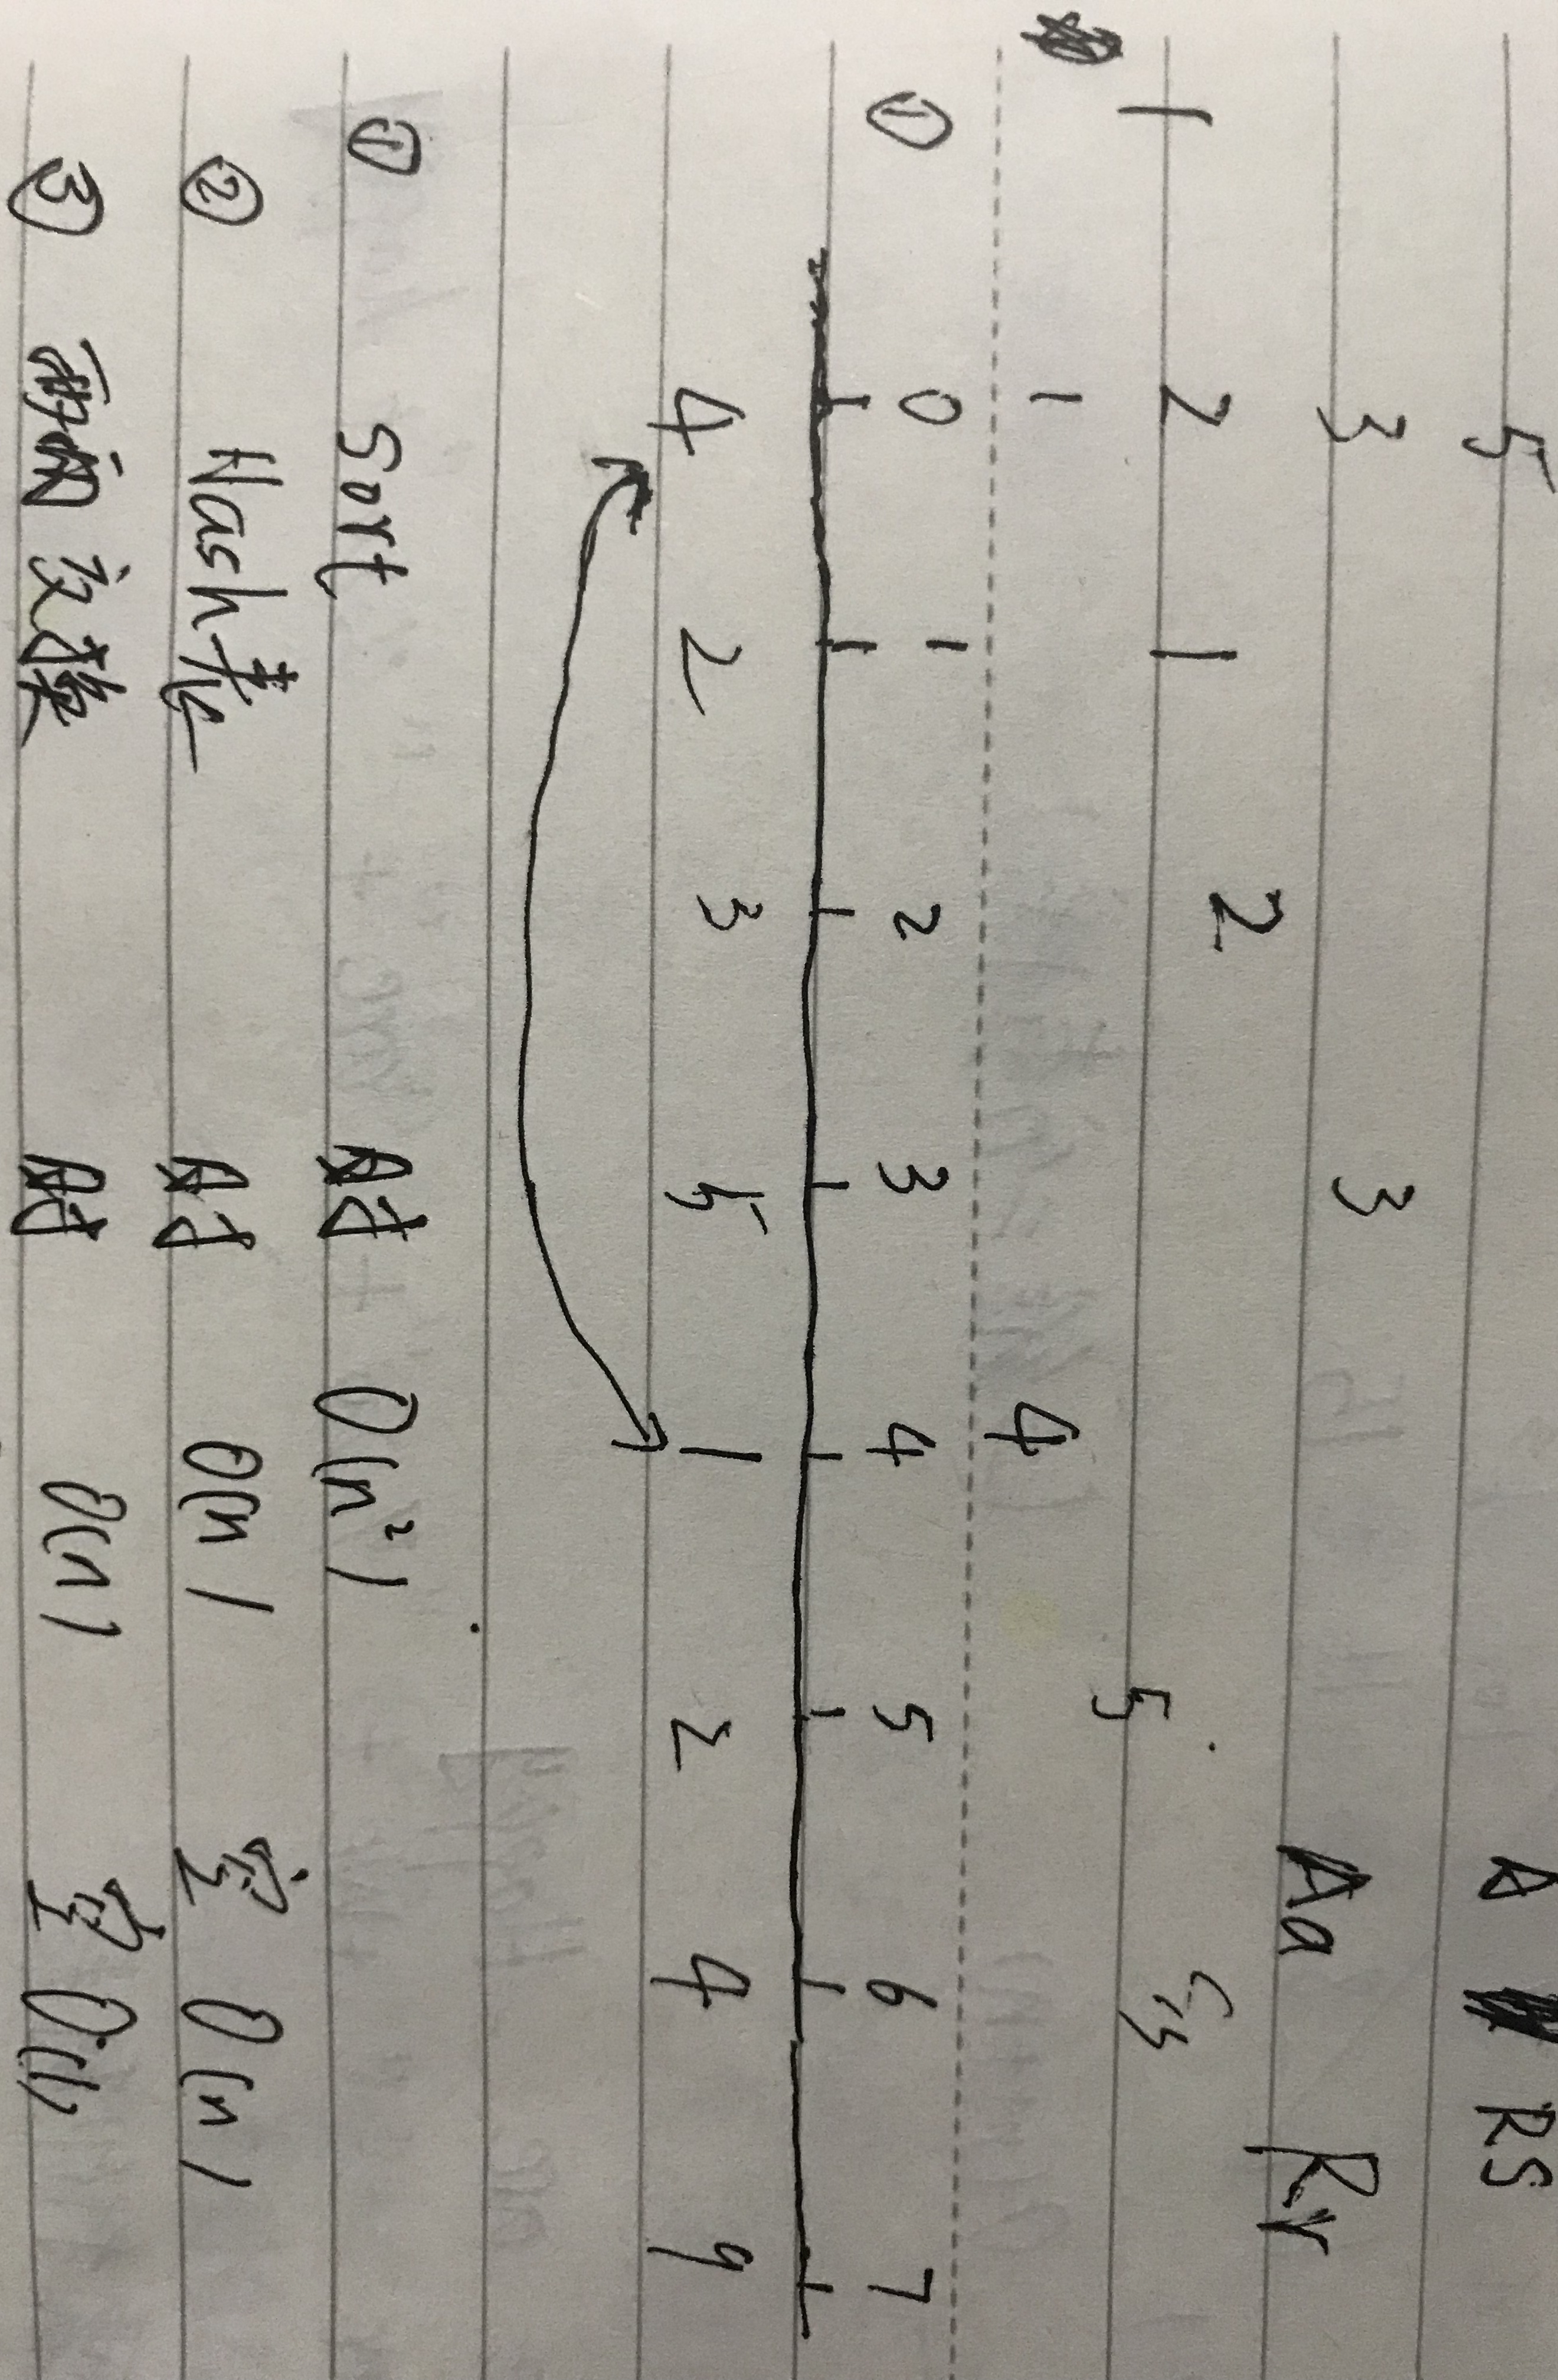 5 A RS
3 3 Aa Rr
1 2 1 2 5
1 4
① 0 1 2 3 4 5 6 7
4 2 3 5 1 2 4 9
① Sort 时 O(n²)
② Hash表 时 O(n) 空 O(n)
③ 两两交换 时 O(n) 空 O(1)